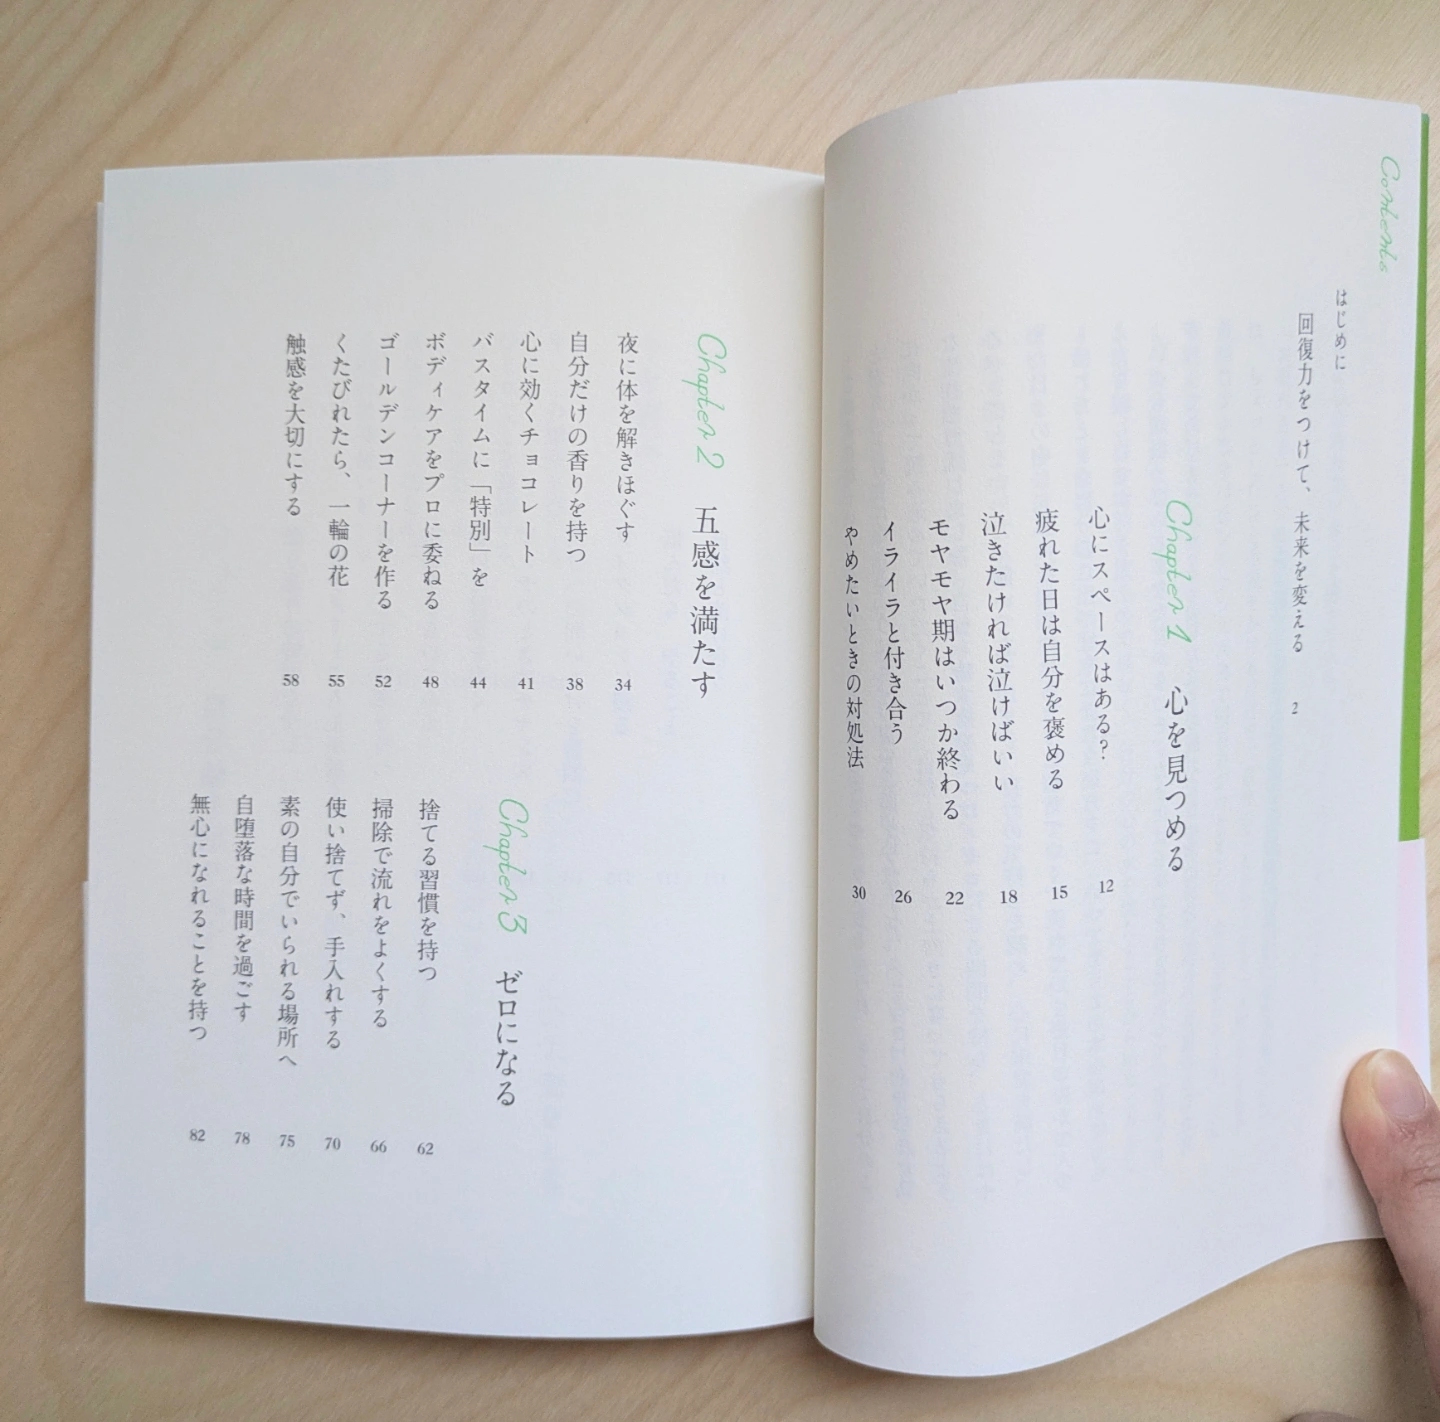 Contents
はじめに
回復力をつけて、未来を変える 2
Chapter 1 心を見つめる
心にスペースはある? 12
疲れた日は自分を褒める 15
泣きたければ泣けばいい 18
モヤモヤ期はいつか終わる 22
イライラと付き合う 26
やめたいときの対処法 30
Chapter 2 五感を満たす
夜に体を解きほぐす 34
自分だけの香りを持つ 38
心に効くチョコレート 41
バスタイムに「特別」を 44
ボディケアをプロに委ねる 48
ゴールデンコーナーを作る 52
くたびれたら、一輪の花 55
触感を大切にする 58
Chapter 3 ゼロになる
捨てる習慣を持つ 62
掃除で流れをよくする 66
使い捨てず、手入れする 70
素の自分でいられる場所へ 75
自堕落な時間を過ごす 78
無心になれることを持つ 82